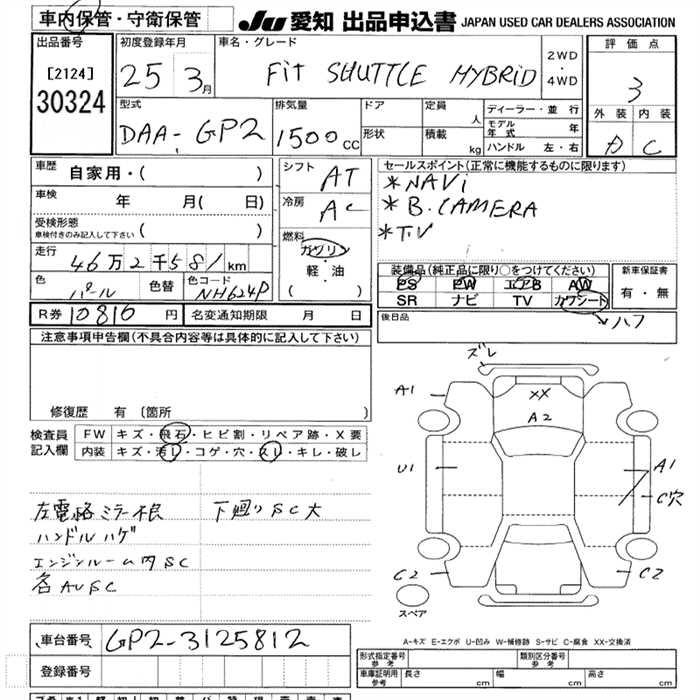 車内保管・守衛保管
JU 愛知 出品申込書 JAPAN USED CAR DEALERS ASSOCIATION
出品番号
[2124]
30324
初度登録年月
25 3月
車名・グレード
Fit SHUTTLE HYBRID
2WD
・
4WD
評価点
3
外装 内装
D C
型式
DAA-GP2
排気量
1500cc
ドア
形状
定員
人
積載
kg
ディーラー・並行
モデル年式 年
ハンドル 左・右
車歴
自家用・( )
車検
年 月( 日)
受検形態
車検付きのみ記入して下さい ( )
走行
46万2千581km
色
パール
色替
色コード
NH624P
シフト
AT
冷房
AC
燃料
ガソリン
・
軽・油
( )
セールスポイント(正常に機能するものに限ります)
*NAVi
*B.CAMERA
*TV
装備品(純正品に限り○をつけてください)
PS PW エアB AW
SR ナビ TV カワシート
→ハフ
新車保証書
有・無
後日品
R券 10810 円
名変通知期限 月 日
注意事項申告欄(不具合内容等は具体的に記入して下さい)
修復歴 有 (箇所 )
検査員記入欄
FW キズ・飛石・ヒビ割・リペア跡・X要
内装 キズ・汚レ・コゲ・穴・スレ・キレ・破レ
左電格ミラー根 下廻りSC大
ハンドルハゲ
エンジンルーム内SC
各AUSC
ズレ
A1
XX
A2
U1
A1
C穴
C2
C2
スペア
A-キズ E-エクボ U-凹み W-補修跡 S-サビ C-腐食 XX-交換済
車台番号
GP2-3125812
登録番号
形式指定番号
参考
類別区分番号
参考
車庫証明用
参考
長さ cm
幅 cm
高さ cm